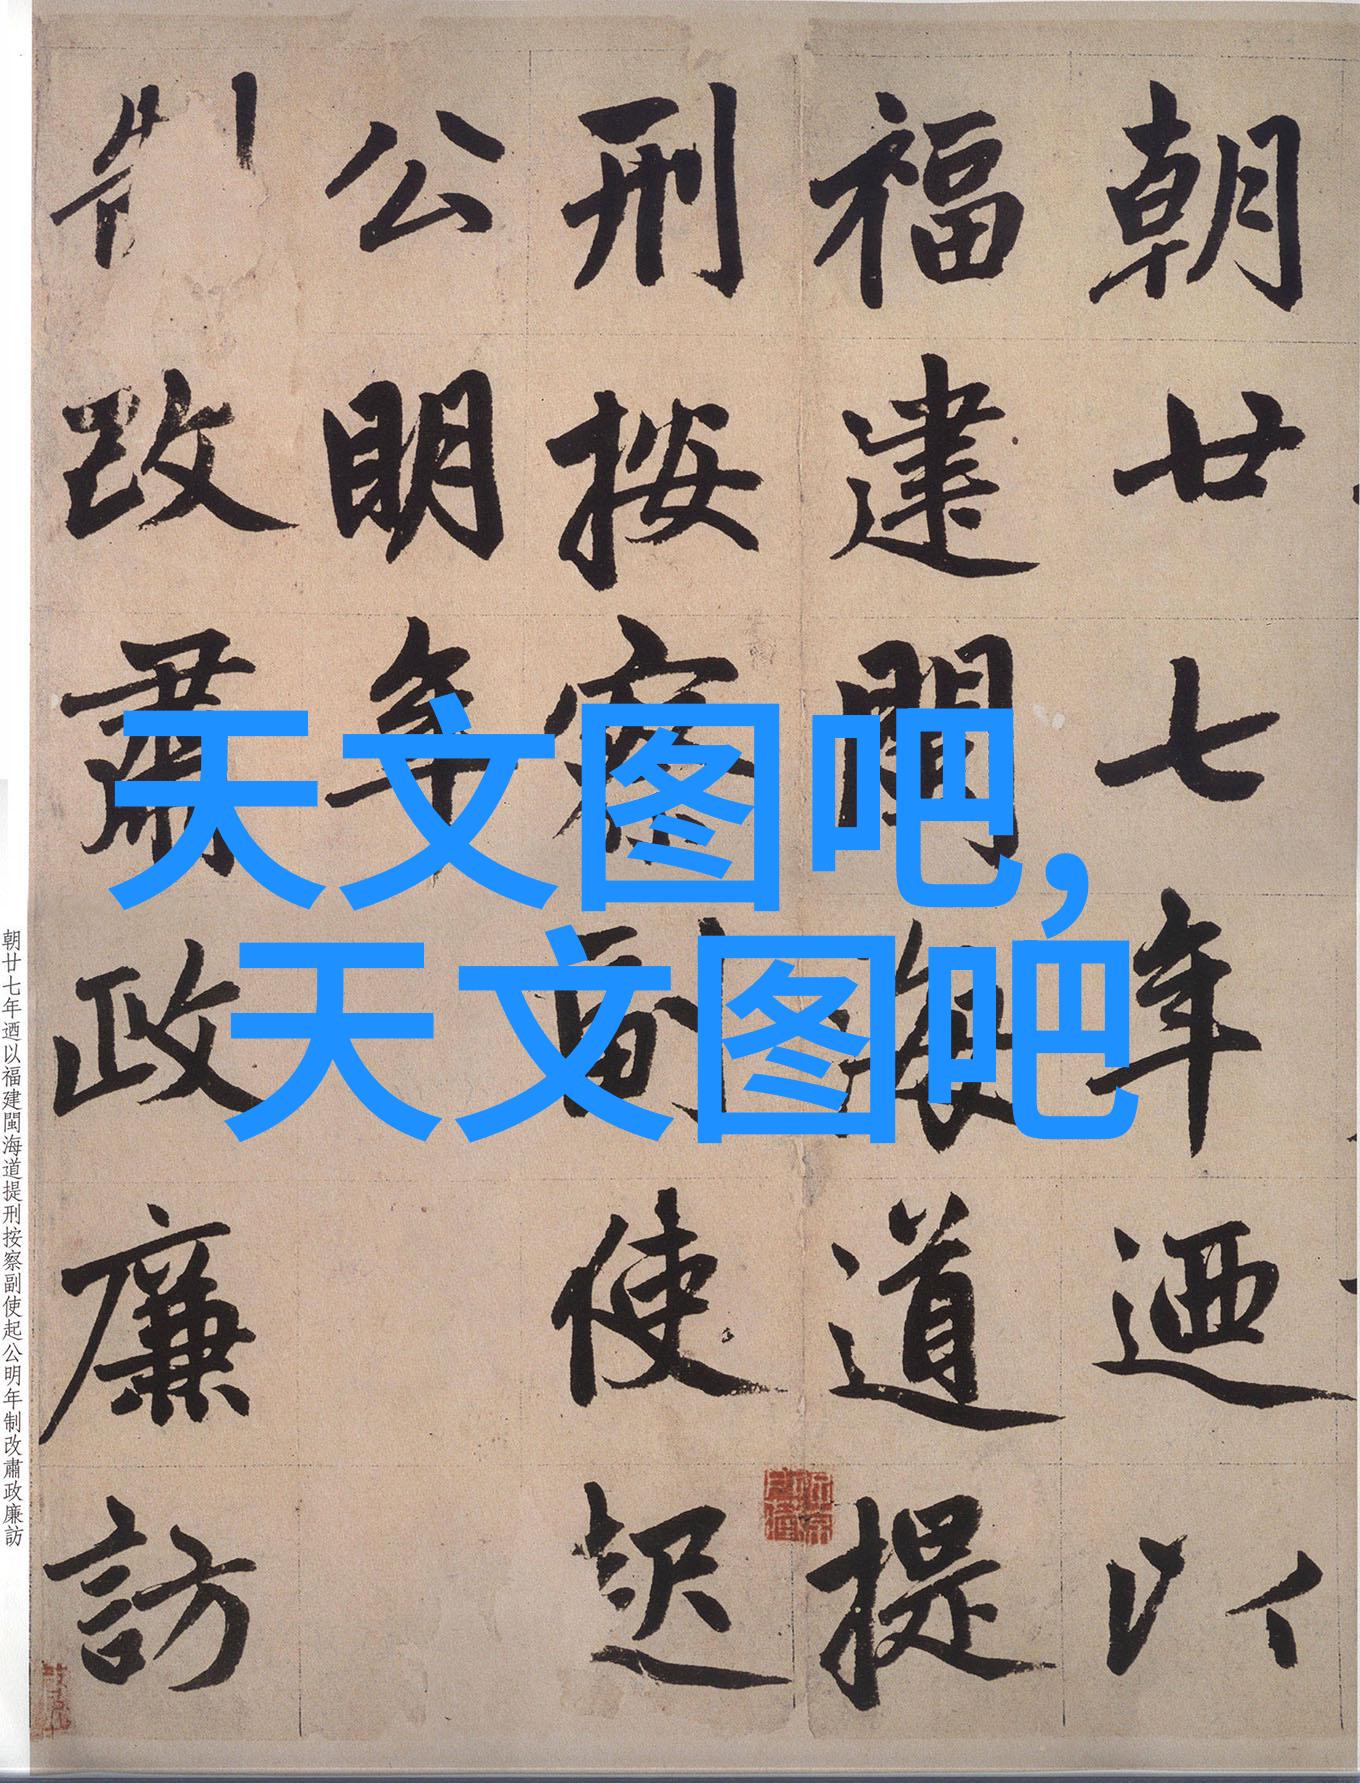 朝廿七年迺以
福建閩海道提
刑按察副使起
公明年
制改肅政廉訪
天文图吧，
天文图吧
朝廿七年迺以福建閩海道提刑按察副使起公明年制改肅政廉訪